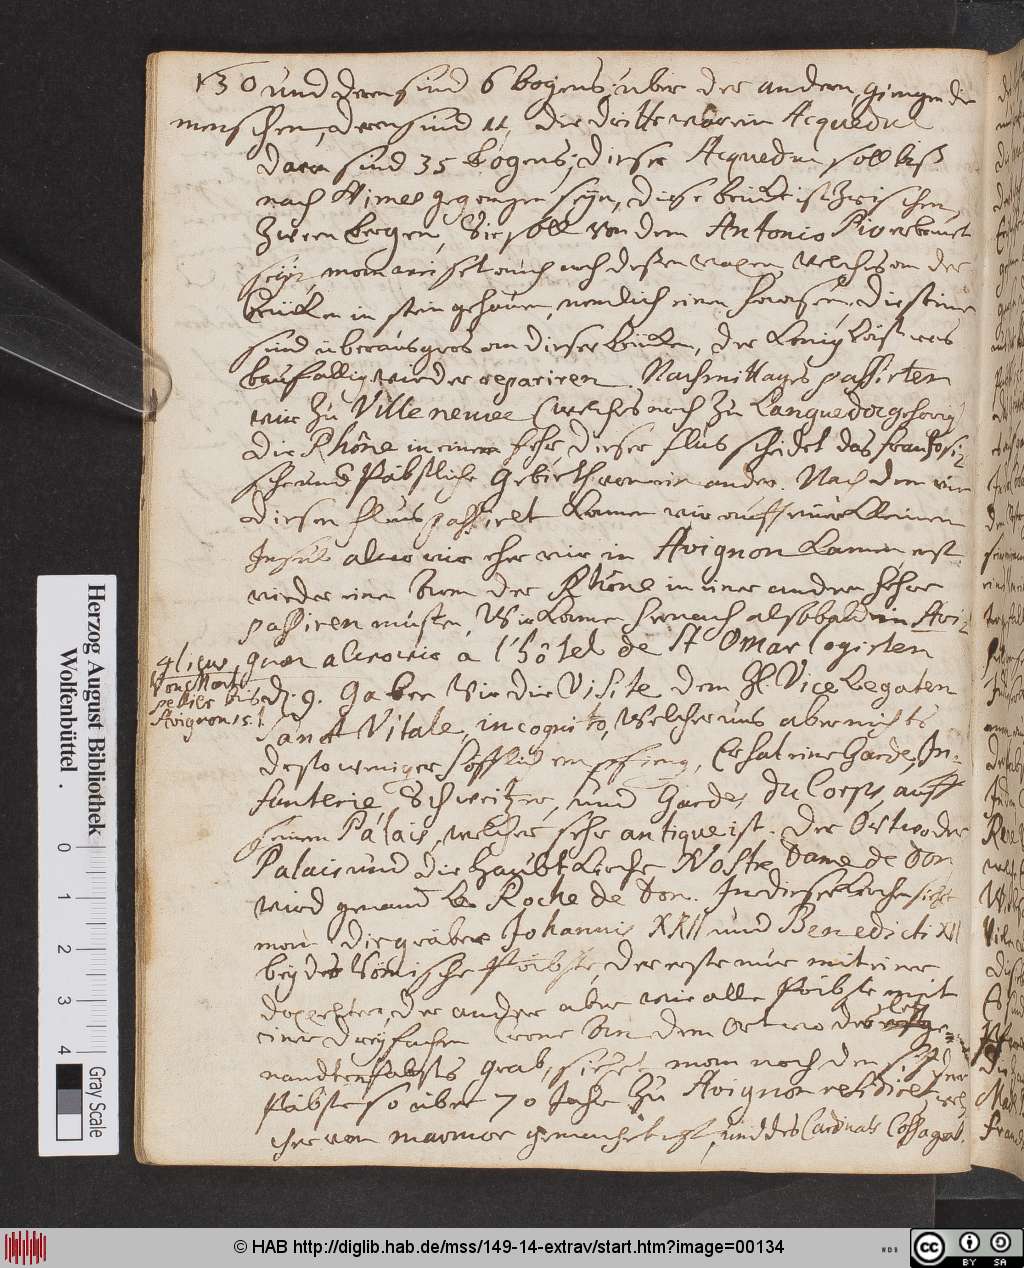 130 und deren sind 6 bogens über der andern, giengen die
menschen, deren sind 11, die dritte war ein Acqueduc
daran sind 35 bogens; dieser Acqueduc soll biß
nach Nimes gegangen seyn, diese brücke ist zwischen
zween bergen, Sie soll von dem Antonio Pio erbauet
seyn, man siehet auch noch deßen wapen, welches an der
brücken in stein gehauen, nemlich einen hasen, die steine
sind überaus gros an dieser brücken, der König läst was
baufällig wieder repariren. Nachmittages passirten
wir zu Villeneuve (welches noch zu Languedoc gehörig)
die Rhône in einem fehr, dieser flus scheidet das frantzösi-
sche und Päbstliche gebieth von ein ander. Nach dem wir
diesen flus passiret kamen wir auff einer kleinen
Insul alwo wir eher wir in Avignon kamen erst
wieder einen arm der Rhône in einer andren fehre
passiren musten, Wir kamen hernach alsobald in Avi-
gnon alwo wir a l'hôtel de St Omar logirten
4 lieus
Von Mont
pellier bis
Avignon 15. l.
d. 9. gaben Wir die Visite dem H. Vice Legaten
Sanct Vitale, incognito, Welcher uns aber nichts
destoweniger höfflich empfieng, Er hat eine Garde, In-
fanterie, Schweitzer, und Gardes du Corps auff
seinen Palais, welcher sehr antique ist. Der Ort wo der
Palais und die Haubt Kirche Nostre Dame de Don
wird genand Le Roche de Don. In dieser Kirche siehet
man die gräber Johannis XXII und Benedicti XII
beyder Römische Päbste, der erste nur mit einer
doppelten, der ander aber wie alle Päbste mit
einer dreyfachen Crone An dem Ort wo des letz ge-
nandten Pabsts grab, siehet man noch den
Päbste so über 70 Jahr zu Avignon residiret wel-
cher von marmor gemacht ist, und des Cardinals
Herzog August Bibliothek
Wolfenbüttel .
0 1 2 3 4
Gray Scale
© HAB http://diglib.hab.de/mss/149-14-extrav/start.htm?image=00134
WDB
cc BY SA